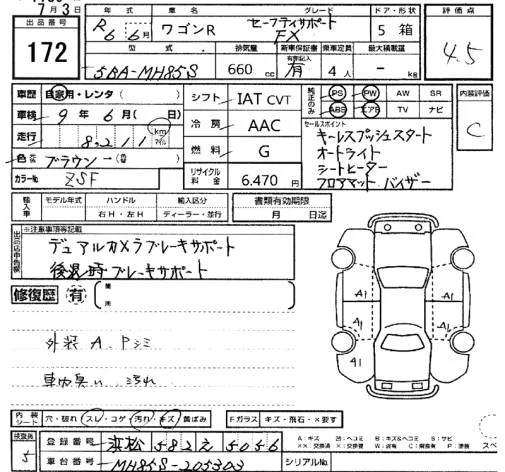 7月3日
出品番号 172
年式 車名 グレード ドア・形状 評価点
R6 6月 ワゴンR セーフティサポート FX 5 箱 4.5
型式 排気量 新車保証書 乗車定員 最大積載量
有無記入
5BA-MH85S 660 cc 有 4人 - kg
車歴 自家用・レンタ( ) シフト IAT CVT 純正のみ PS PW AW SR 内装評価
車検 9年6月( 日) ABS エアB TV ナビ C
走行 8,211 km マイル 冷房 AAC セールスポイント
キーレスプッシュスタート
色 ブラウン→( ) 燃料 G オートライト
シートヒーター
カラーNo ZSF リサイクル料金 6,470円 フロアマット バイザー
輸入車 モデル年式 ハンドル 輸入区分 書類有効期限
右H・左H ディーラー・並行 月 日迄
出品店申告欄 ※注意事項等記載
デュアルカメラブレーキサポート
後退時ブレーキサポート
修復歴 有 箇所
A1 A1
A1 A1
A1
外装 A、Pシミ
車内臭い 汚れ
内装シート 穴・破れ スレ・コゲ 汚れ・キズ 黄ばみ Fガラス キズ・飛石・×要す
検査員 5 登録番号 浜松 582 え 5056
車台番号 MH85S-205303 シリアルNo.
A:キズ B:キズ&ヘコミ S:サビ
××:交換済 X:交換要 W:波有 C:腐食有 P:塗装